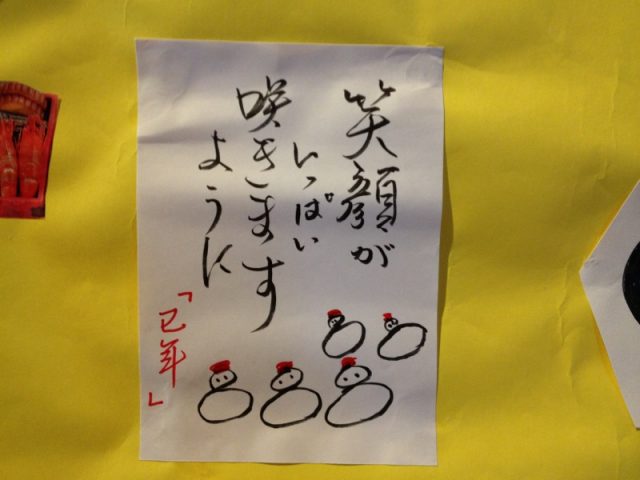 笑顔が
いっぱい
咲きます
ように
「巳年」